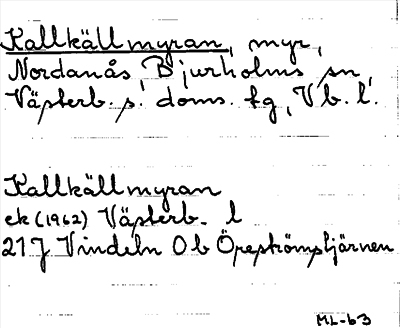 Kallkällmyran, myr,
Nordanås, Bjurholms sn,
Västerb. s. doms. tg, Vb. l.
Kallkällmyran
ek (1962) Västerb. l
21J Vindeln 0b Öreströmstjärnen
ML-63